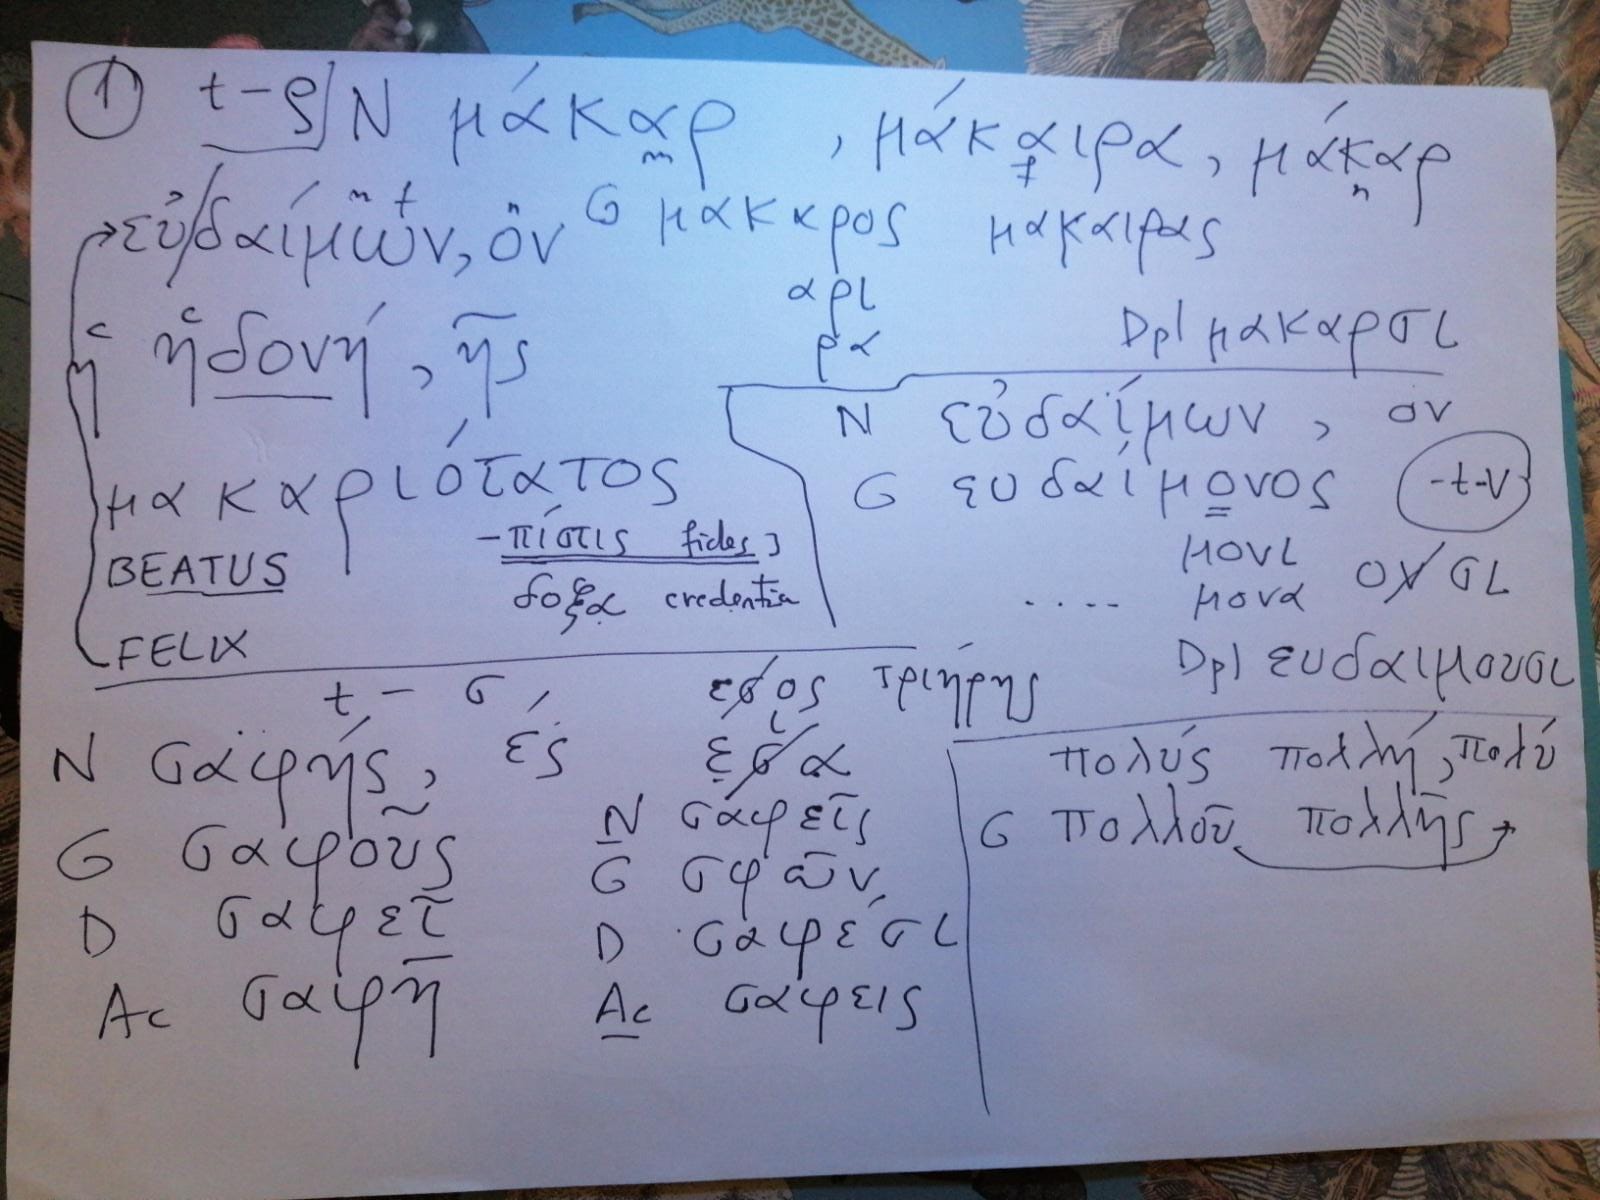 ① t-ρ N μάκαρ , μάκαιρα, μάκαρ
m f n
εὐ/δαίμων, ον G μακαρος μακαιρας
m f n
αρι
ρα
Dpl μακαρσι
ἡ ἡδονή, ῆς
μακαριότατος
BEATUS
FELIX
-πίστις fides
δοξα credentia
N εὐδαίμων, ον
G ευδαίμονος -t-ν
μονι
.... μονα ονσι
Dpl ευδαιμοσι
t - σ, εσος τριήρης
N σαφής, ές εσα
G σαφοῦς
D σαφεῖ
Ac σαφῆ
N σαφεῖς
G σφῶν
D σαφέσι
Ac σαφεις
πολύς πολλή, πολύ
G πολλοῦ πολλῆς